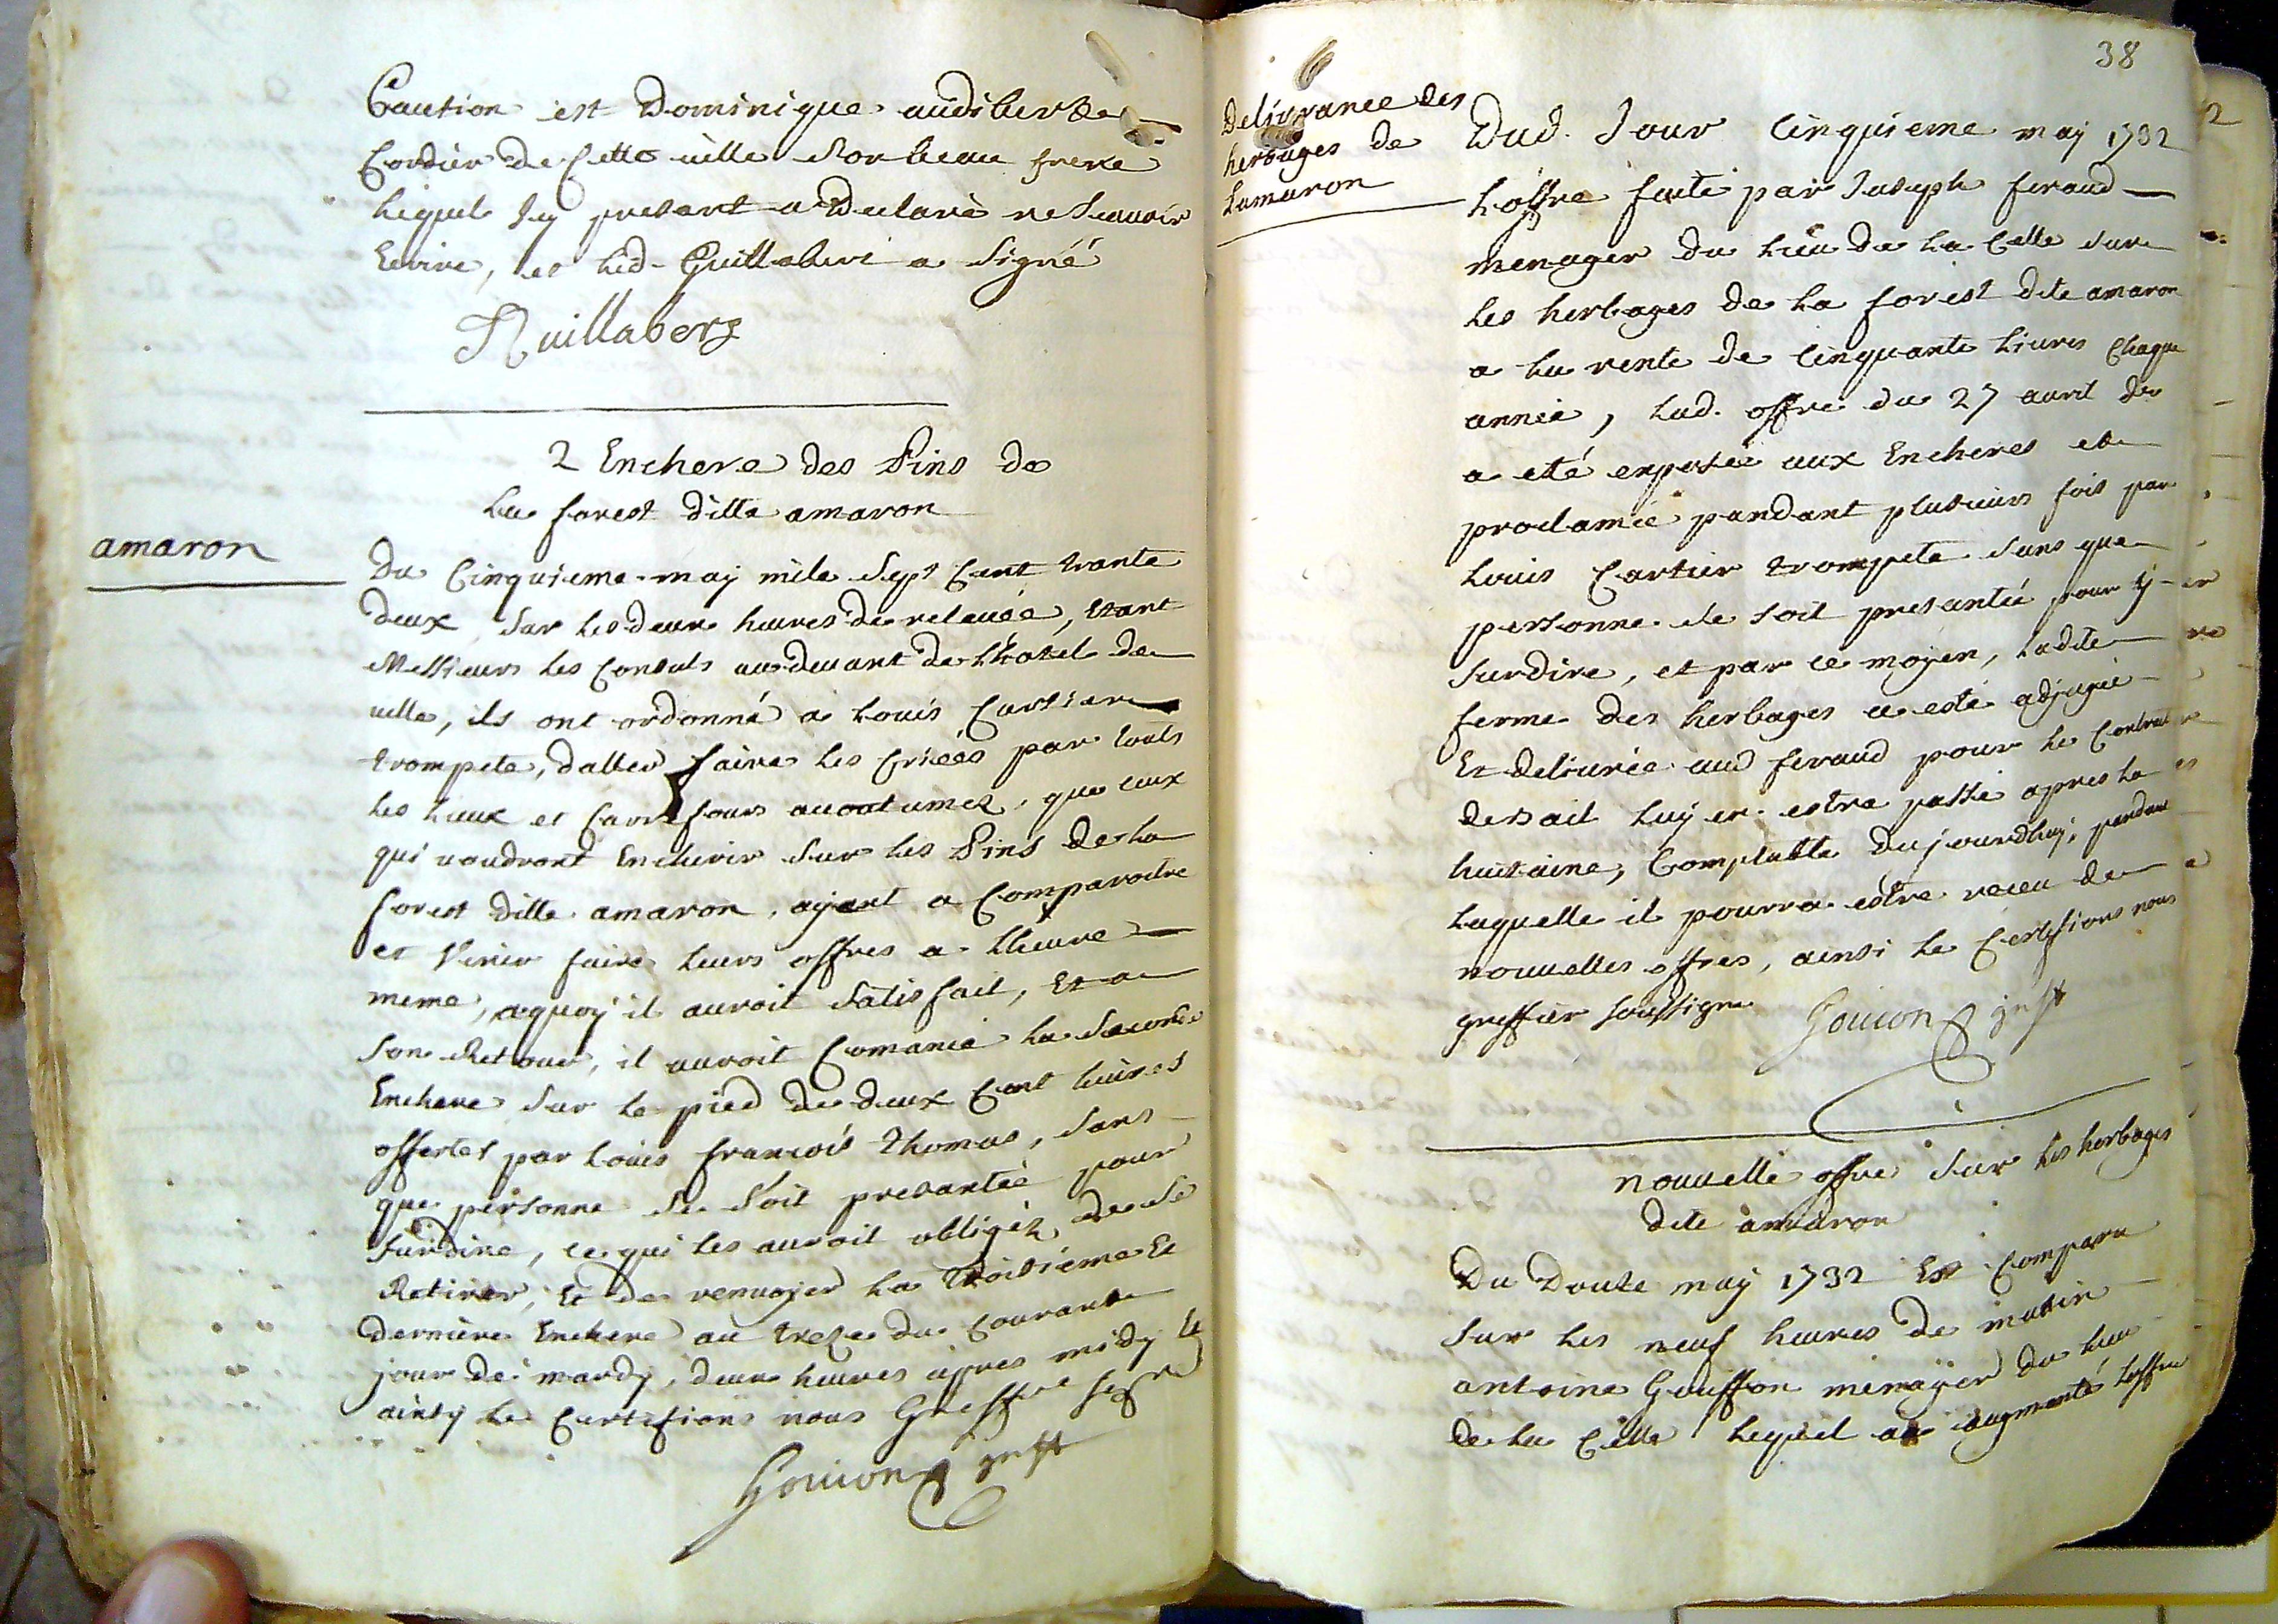 Caution est Dominique audibert
Cordier de Cette ville son beau frere
lequel Icy present a Declaré ne scavoir
Ecrire, et led. Guillabert a signé
Guillabert
2 Enchere des Pins de
la forest ditte amaron
amaron
Du Cinquieme may mile sept Cent trante
deux sur les deux heures de relevée, Etant
Messieurs les Consuls au devant de Lhotel de
ville, ils ont ordonné a Louis Cartier
trompete, daller faire les Criées par touts
les Lieux et Carrefours acoutumez, que ceux
qui voudront Encherir sur les Pins de la
forest ditte amaron, ayent a Comparoitre
et Venir faire leurs offres a Lheure
meme, aquoy il auroit satisfait, Et a
son Retour, il auroit Comancé la seconde
Enchere sur le pied de deux Cent livres
offertes par Louis francois Thomas, sans
que personne se soit presantée pour
surdire, ce qui les auroit obligéz de se
Retirer, Et de renvoyer la troisieme Et
derniere Enchere au treze du Courant
jour de mardy, deux heures apres midy
ainsy le Certifions nous Greffier
Gouion greff
38
Delivrance des
herbages de
Lamaron
Dud. Jour Cinquieme may 1732
Loffre faite par Joseph feraud
menager du lieu de la Celle sur
les herbages de la forest dite amaron
a la rente de Cinquante livres Chaque
année, lad. offre du 27 avril der
a eté exposée aux Encheres et
proclamée pandant plusieurs fois par
Louis Cartier trompete sans que
personne se soit presantée pour y
surdire, et par ce moyen, ladite
ferme des herbages a esté adjugée
Et delivrée aud feraud pour le Contrat
desail luy en estre passé apres la
huitaine, Comptable dujourdhuy, pendant
laquelle il pourra estre receu de
nouvelles offres, ainsi le Certifions nous
greffier soussigné Gouion greff
nouvelle offre sur les herbages
dite amaron
Du Douze may 1732 Est Comparu
sur les neuf heures de matin
antoine Gueiffon menager du lieu
de la Celle lequel a augmenté Loffre